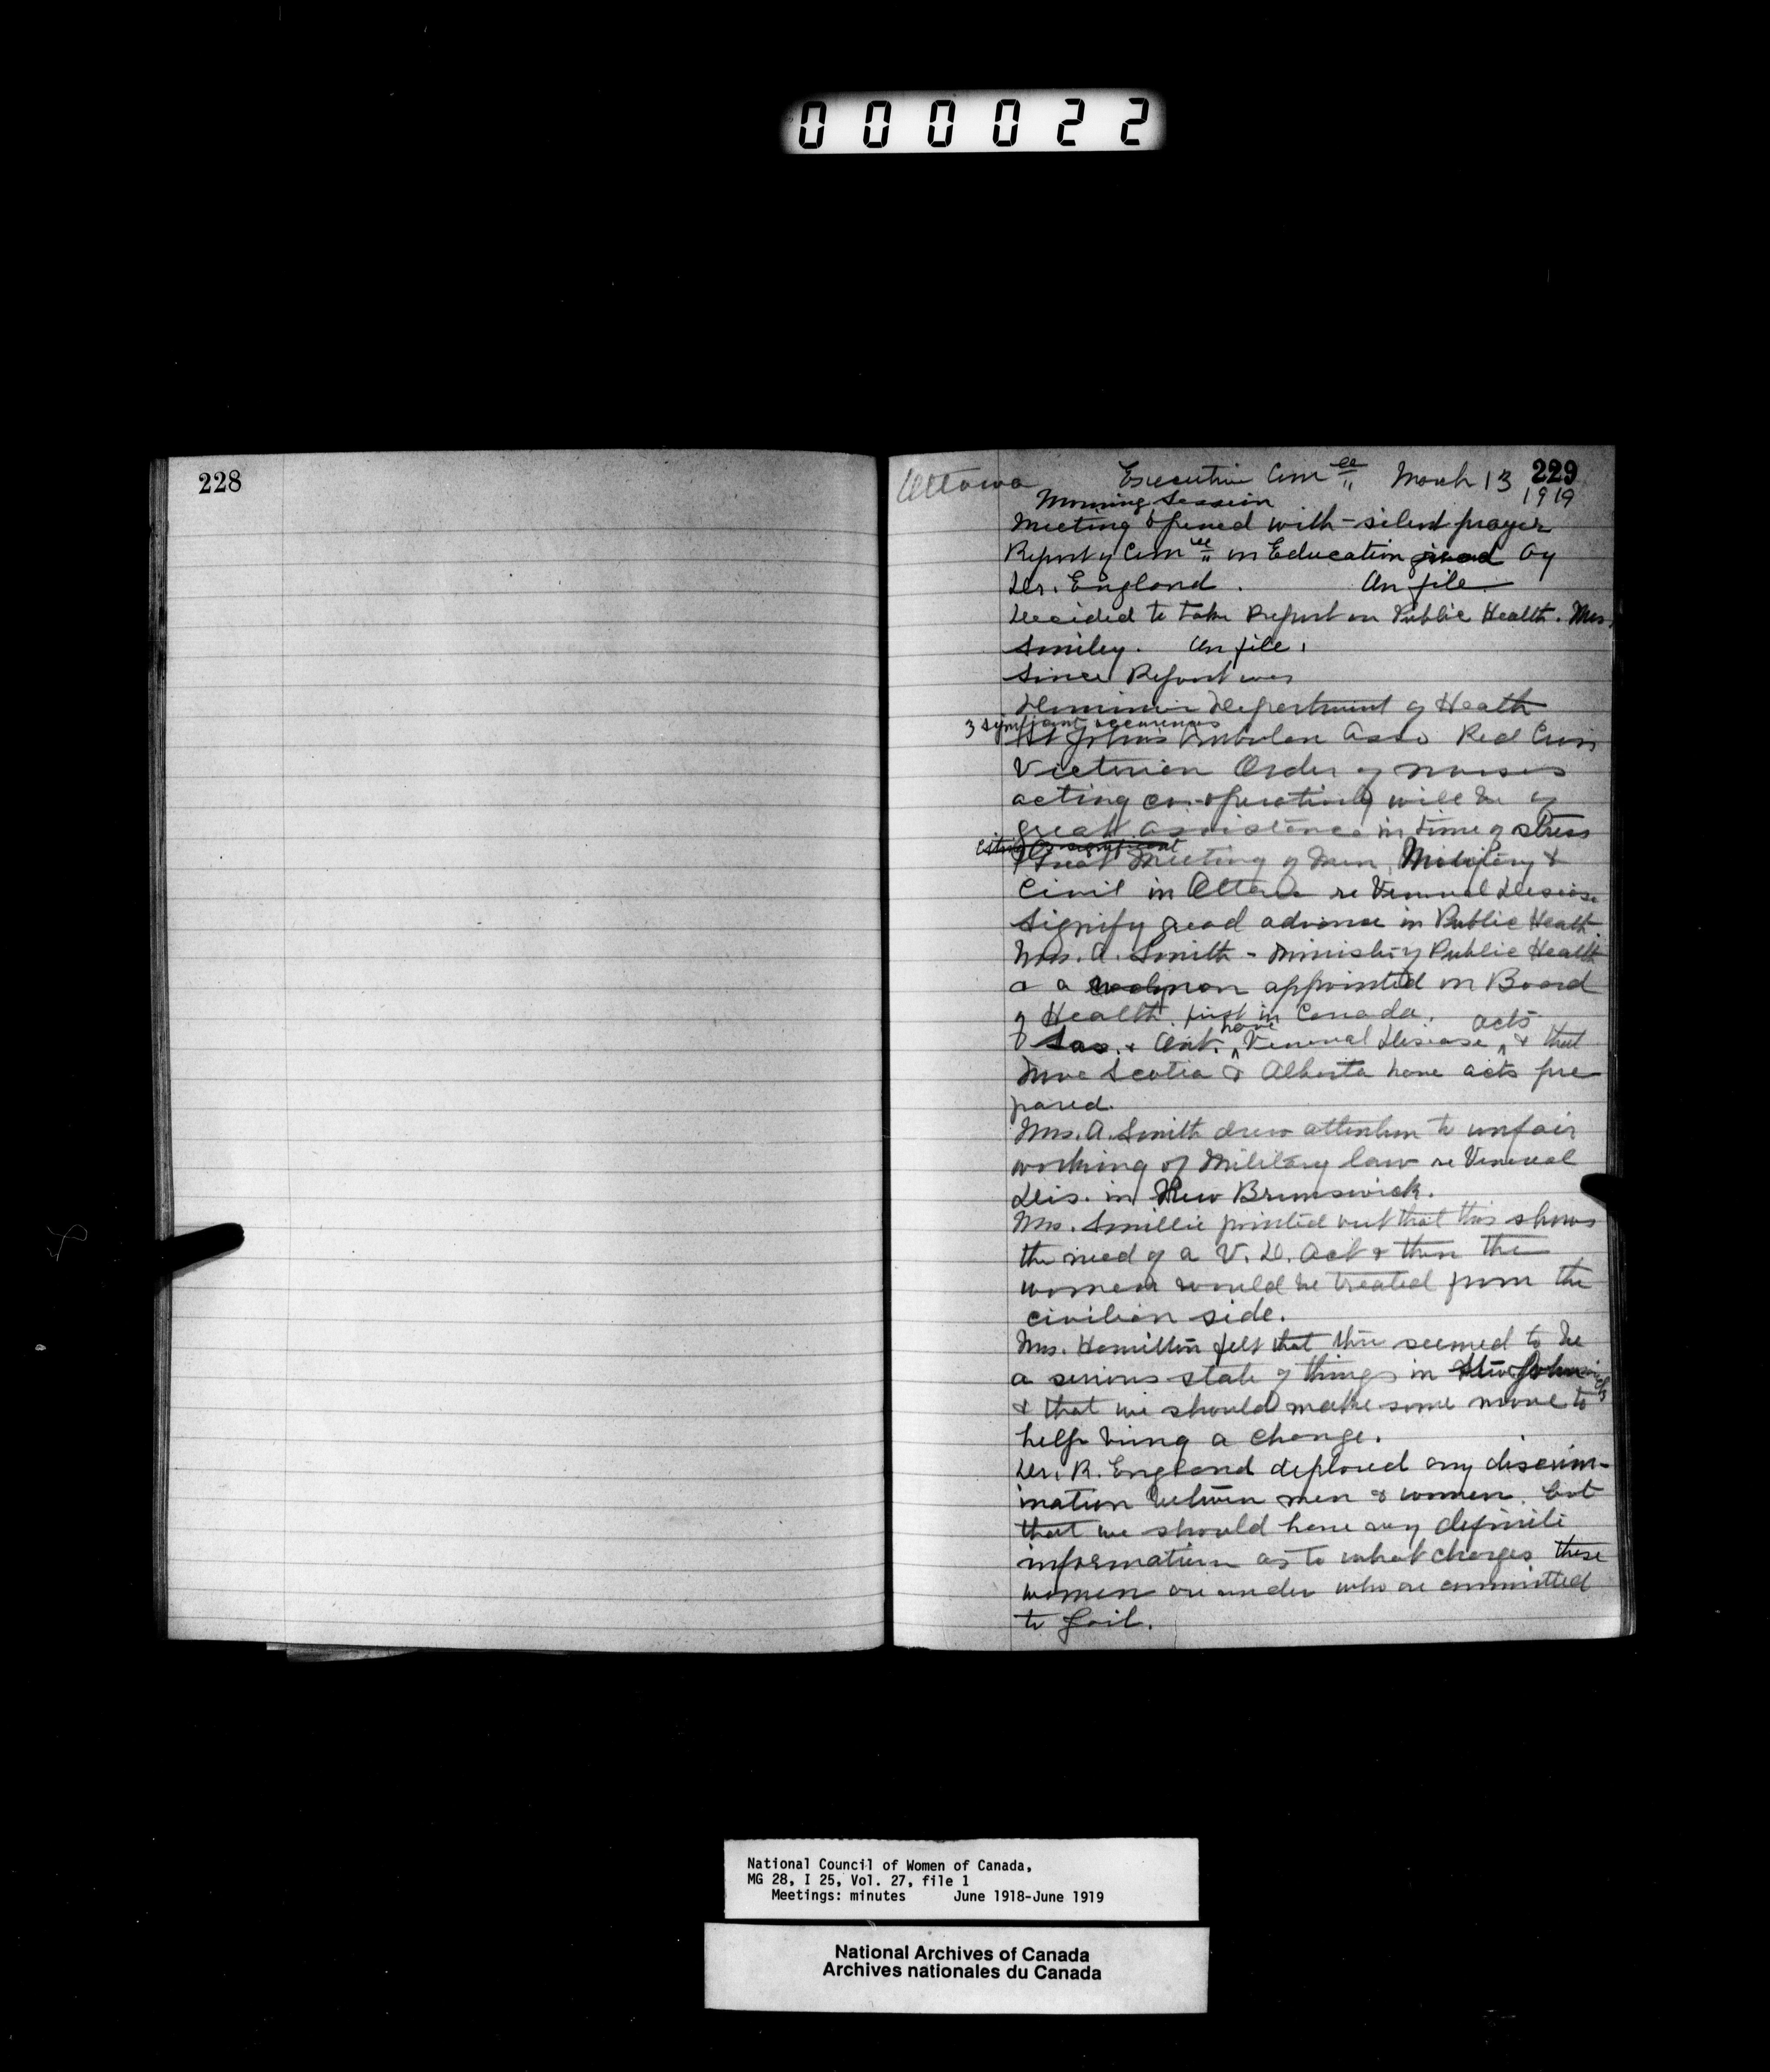 000022
228
229
Ottawa Executive Com ee March 13 1919
Morning Session
Meeting opened with silent prayer
Report of Com ee on Education read by
Dr. England. On file
Decided to take Report on Public Health. Mrs.
Smiley. On file.
Since Report was
Dominion Department of Health
3 significant occurences
St John's Ambulan Asso Red Cross
Victorian Order of nurses
acting co-operatively will be of
great assistance in time of stress
Great Meeting of Men, Military &
Civil in Ottawa re Veneral Disease
Signify great advance in Public Health.
Mrs. A. Smith - Ministry Public Health
& a woman appointed on Board
of Health first in Canada.
Sas. & Ont. have Veneral Disease acts & that
Nova Scotia & Alberta have acts pre
pared.
Mrs. A. Smith drew attention to unfair
working of Military law re Veneral
Dis. in New Brunswick.
Mrs. Smillie pointed out that this shows
the need of a V. D. Act & then the
women would be treated from the
civilian side.
Mrs. Hamilton felt that there seemed to be
a serious state of things in
& that we should make some move to
help bring a change.
Dr. R. England deplored any discrim-
ination between men & women. but
that we should have very definite
information as to what charges these
women are under who are committed
to Gail.
National Council of Women of Canada,
MG 28, I 25, Vol. 27, file 1
Meetings: minutes June 1918-June 1919
National Archives of Canada
Archives nationales du Canada